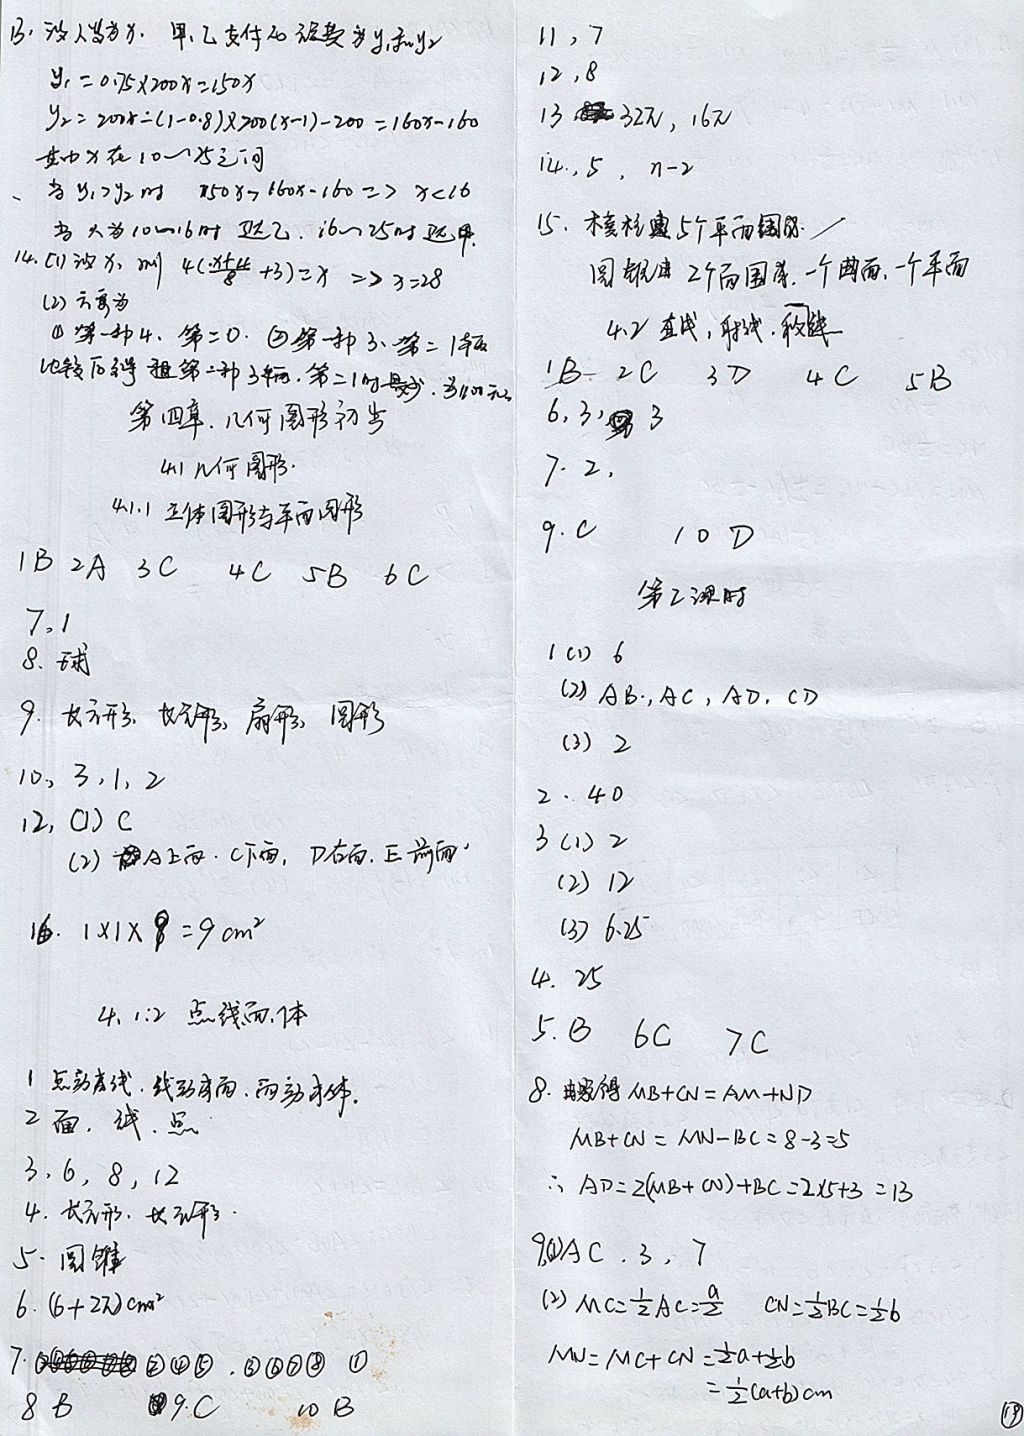 13. 设人数为x. 甲、乙支付的运费为y₁和y₂
y₁=0.75×200x=150x
y₂=200x-(1-0.8)×200(x-1)-200=160x-160
其中x在10~25之间
当y₁>y₂时 150x>160x-160=> x<16
当x为10~16时 选乙. 16~25时选甲.
14. (1) 设x, 则 4(+3)=x => x=28
(2) 方案为
① 第一种4、第二0. ② 第一种3、第二1辆
租第一种3辆. 第二1时最少.
第四章. 几何图形初步
4.1 几何图形.
4.1.1 立体图形与平面图形
1B 2A 3C 4C 5B 6C
7. 1
8. 球
9. 长方形、长方形、扇形、圆形
10、3,1,2
12, (1) C
(2) A上面. C下面, D右面. E前面.
16. 1×1×9=9cm²
4.1.2 点线面、体
1 点动成线. 线动成面. 面动成体.
2 面. 线. 点
3. 6, 8, 12
4. 长方形. 长方形.
5. 圆锥
6. (6+2π)cm²
7. ②④⑤. ③⑥⑦⑧ ①
8 B 9. C 10 B
11, 7
12, 8
13 32π, 16π
14., 5, n-2
15. 棱柱由5个平面围成.
圆锥由2个面围成. 一个曲面. 一个平面
4.2 直线, 射线. 线段
1B 2C 3D 4C 5B
6. 3, 3
7. 2,
9. C 10 D
第2课时
1 (1) 6
(2) AB., AC, AD. CD
(3) 2
2. 40
3 (1) 2
(2) 12
(3) 6.25
4. 25
5. B 6C 7C
8. 得 MB+CN=AM+ND
MB+CN=MN-BC=8-3=5
∴ AD=2(MB+CN)+BC=2×5+3=13
9.(1) AC. 3, 7
(2) MC=½AC=a/2 CN=½BC=½b
MN=MC+CN=½a+½b
=½(a+b)cm
⑲